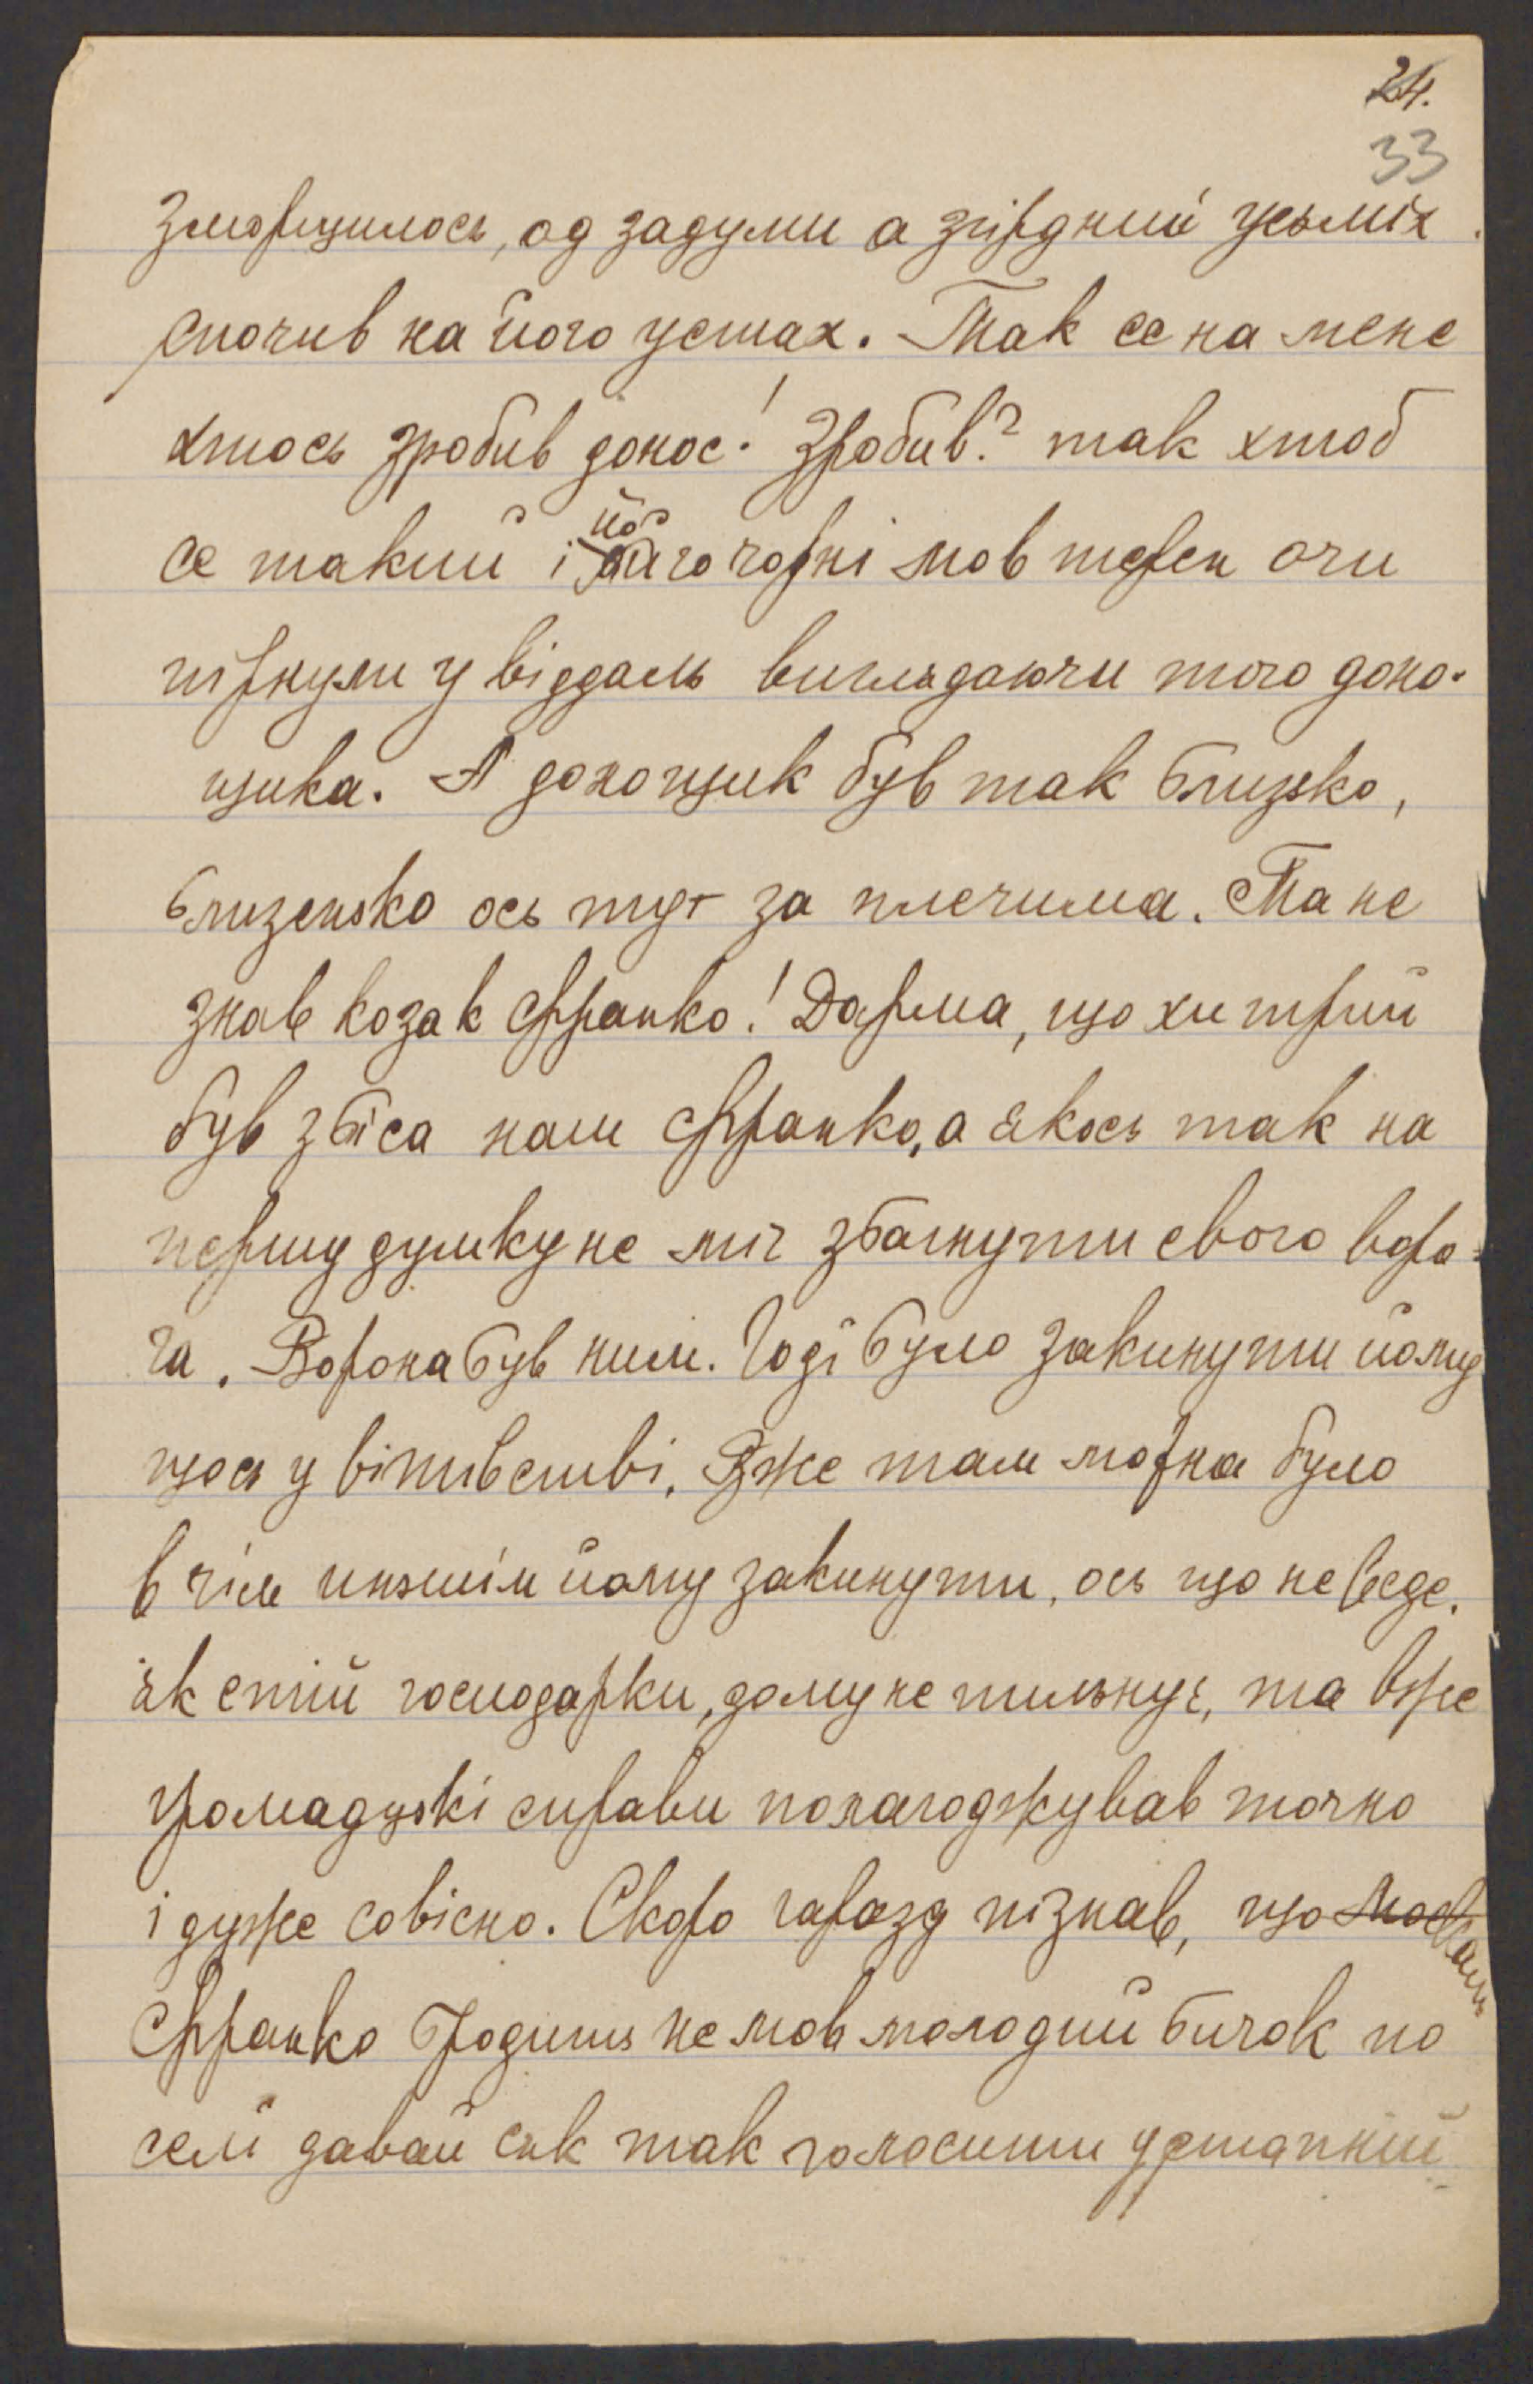 24.
33
зморщилось, од задуми а згірдний усьміх
спочив на його устах. Так се на мене
хтось зробив донос! Зробив? так хтоб
се такий і його чорні мов терен очи
пірнули у віддаль виглядаючи того доно-
щика. А доношик був так близько,
близенько ось тут за плечима. Та не
знав козак Франко! Дарма, що хитрий
був з біса наш Франко, а якось так на
першу думку не міг збагнути свого воро-
га. Ворона був ним. Годі було закинути йому
щось у війтівстві. Вже там можна було
в чім иньшім йому закинути, ось що не веде.
як стій господарки, дому не пильнує, та вже
громадзкі справи полагоджував точно
і дуже совісно. Скоро гаразд пізнав, що москаль
Франко бродить немов молодий бичок по
селі давай сяк так голосити устапний